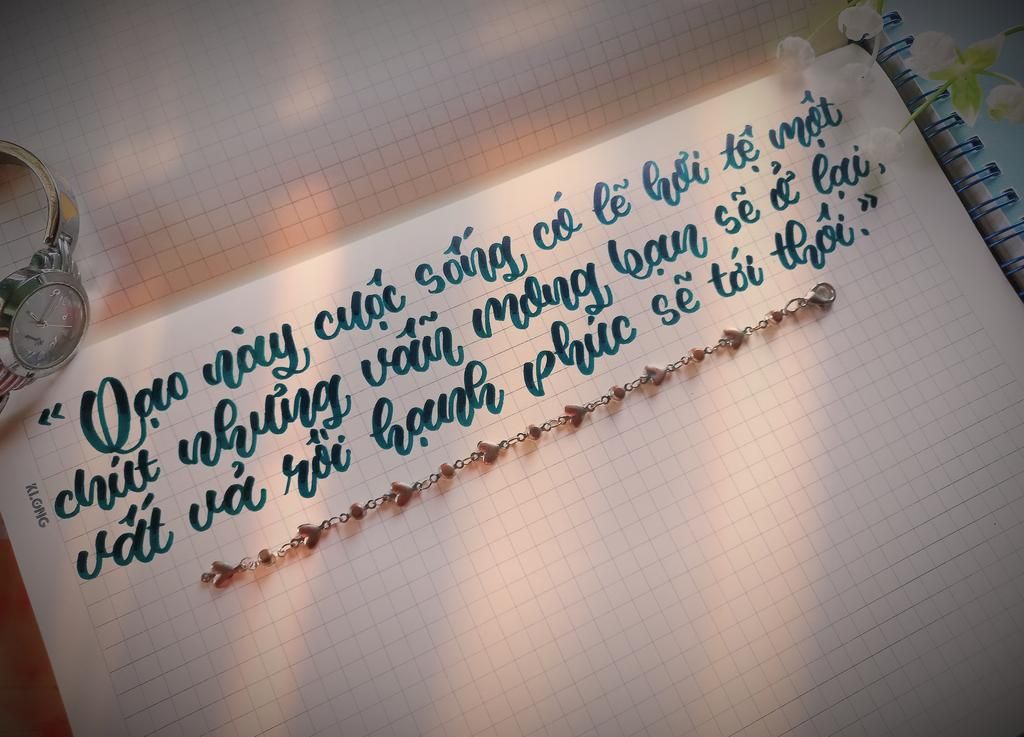 “Dạo này cuộc sống có lẽ hơi tệ một
chút nhưng vẫn mong bạn sẽ ở lại,
vất vả rồi hạnh phúc sẽ tới thôi.”
KI.ONG